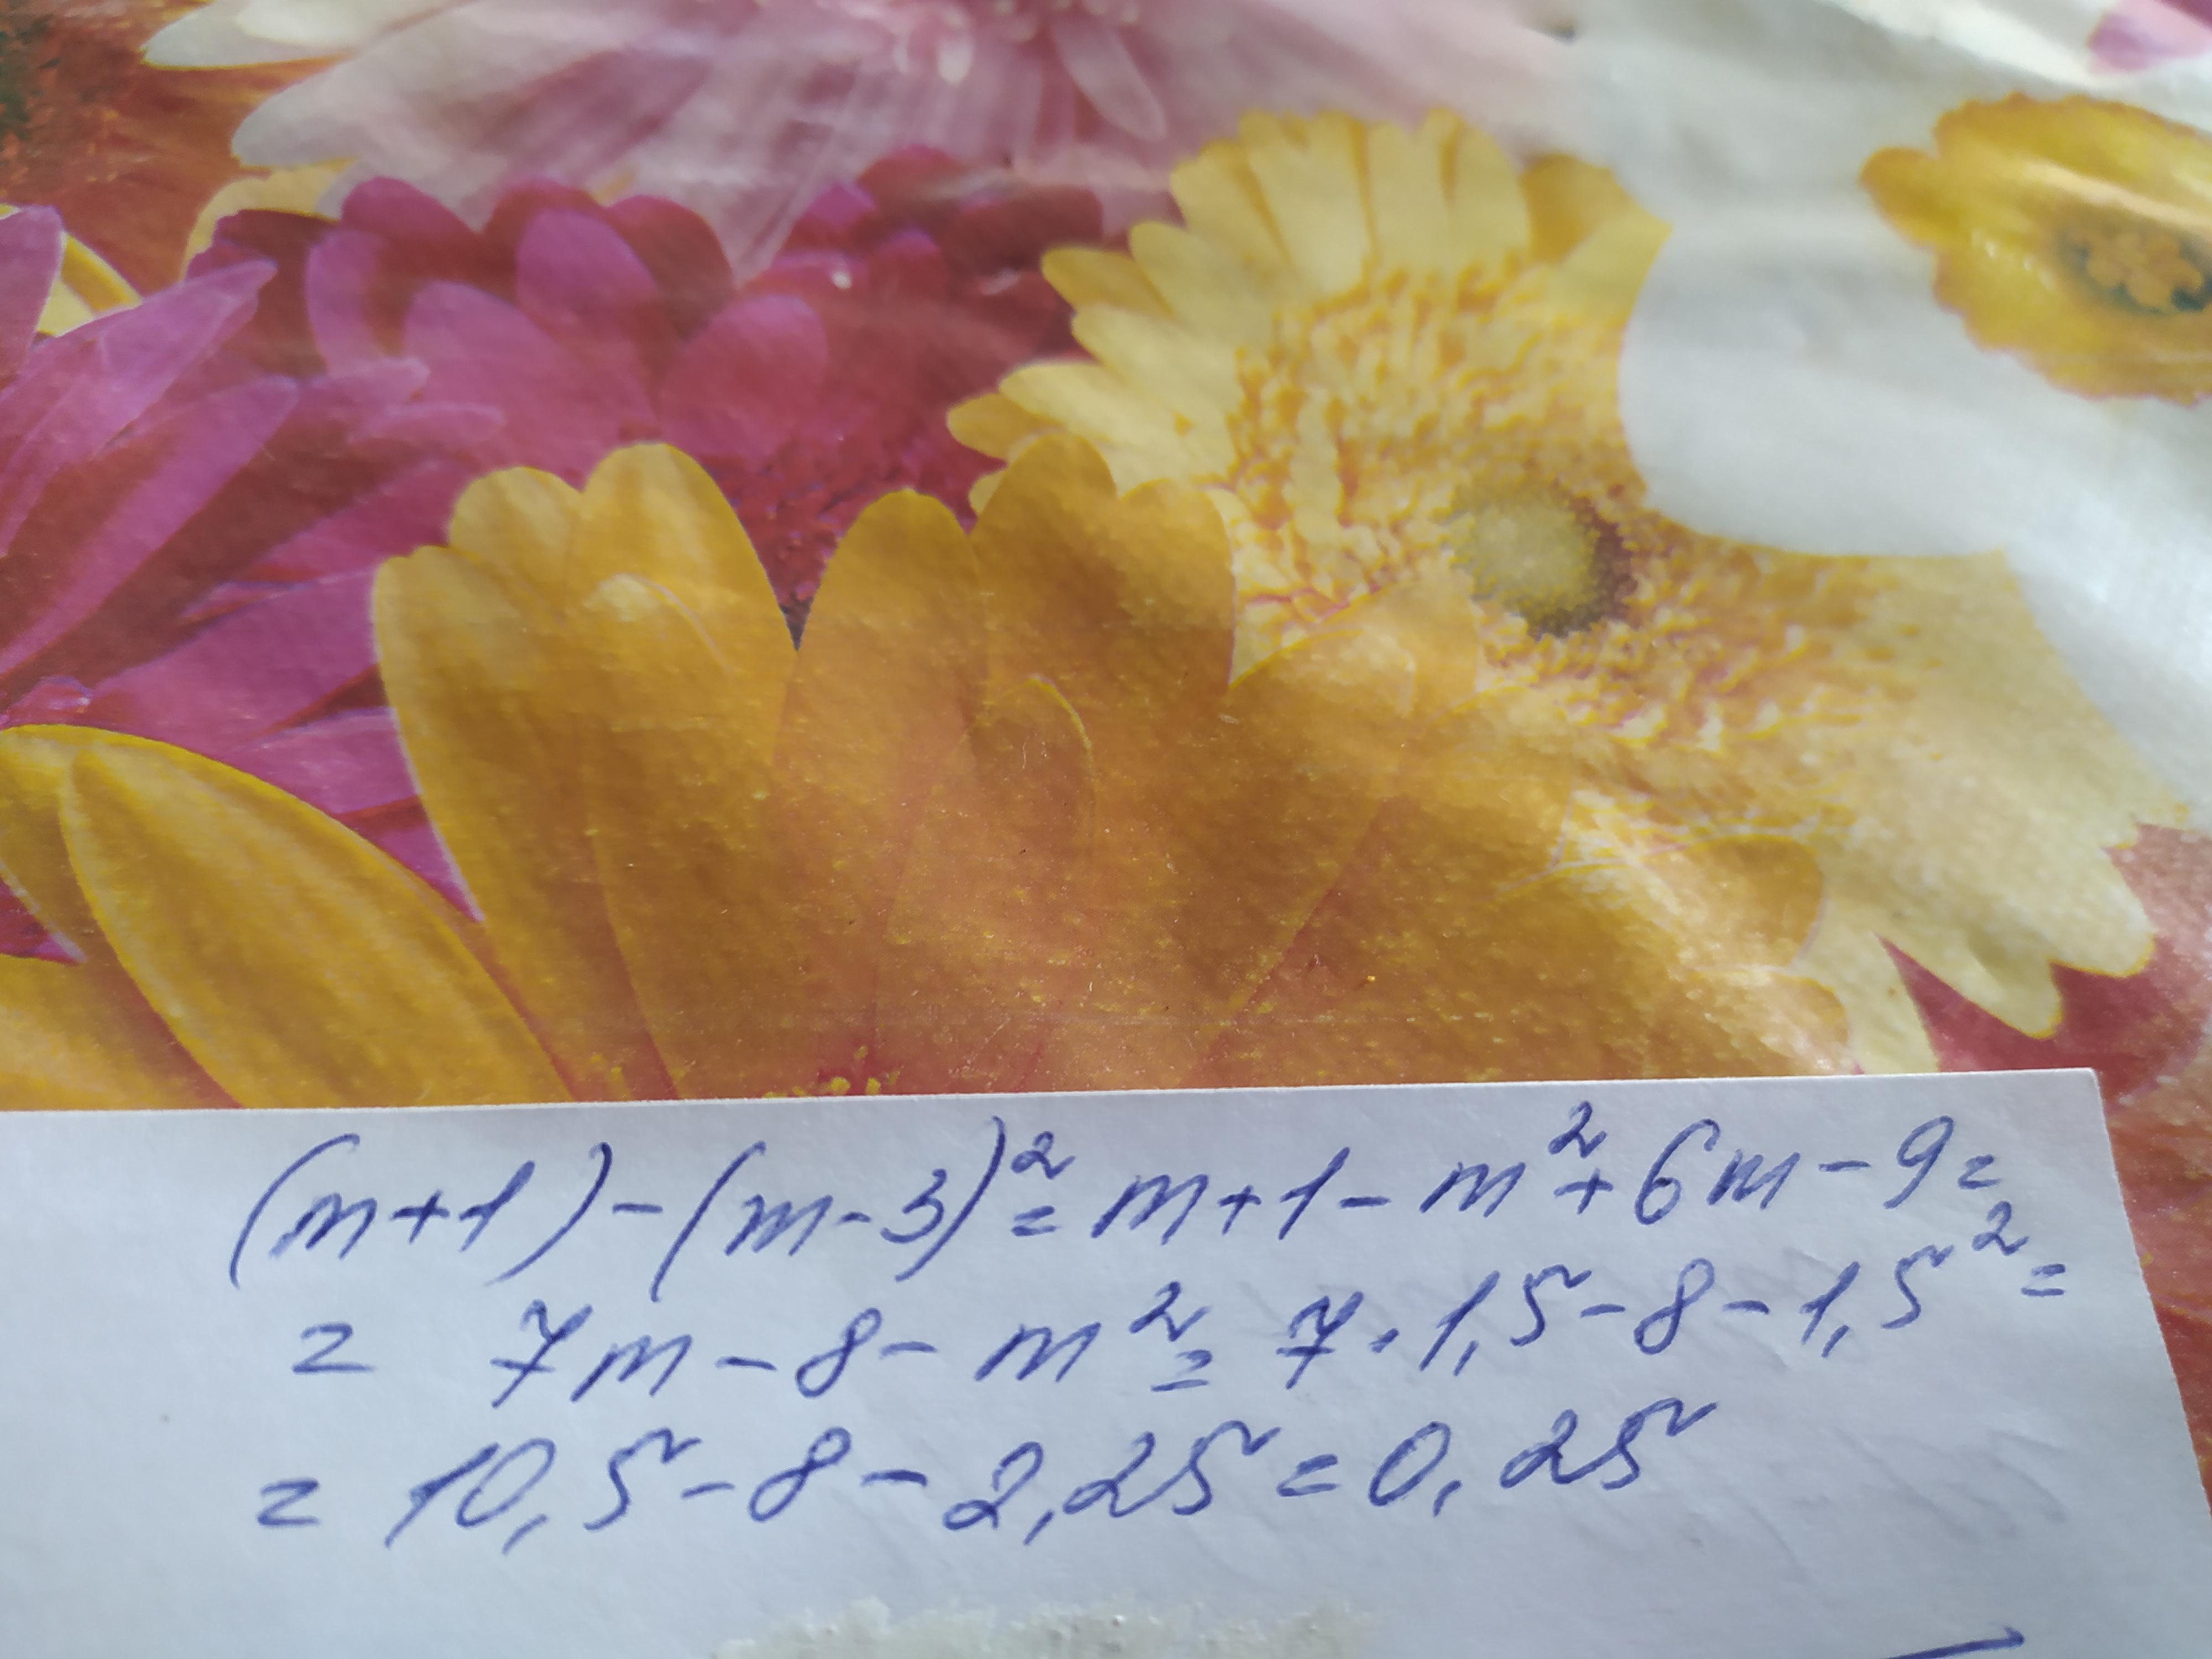 (m+1)-(m-3)²=m+1-m²+6m-9=
= 7m-8-m²=7·1,5-8-1,5²=
= 10,5-8-2,25=0,25